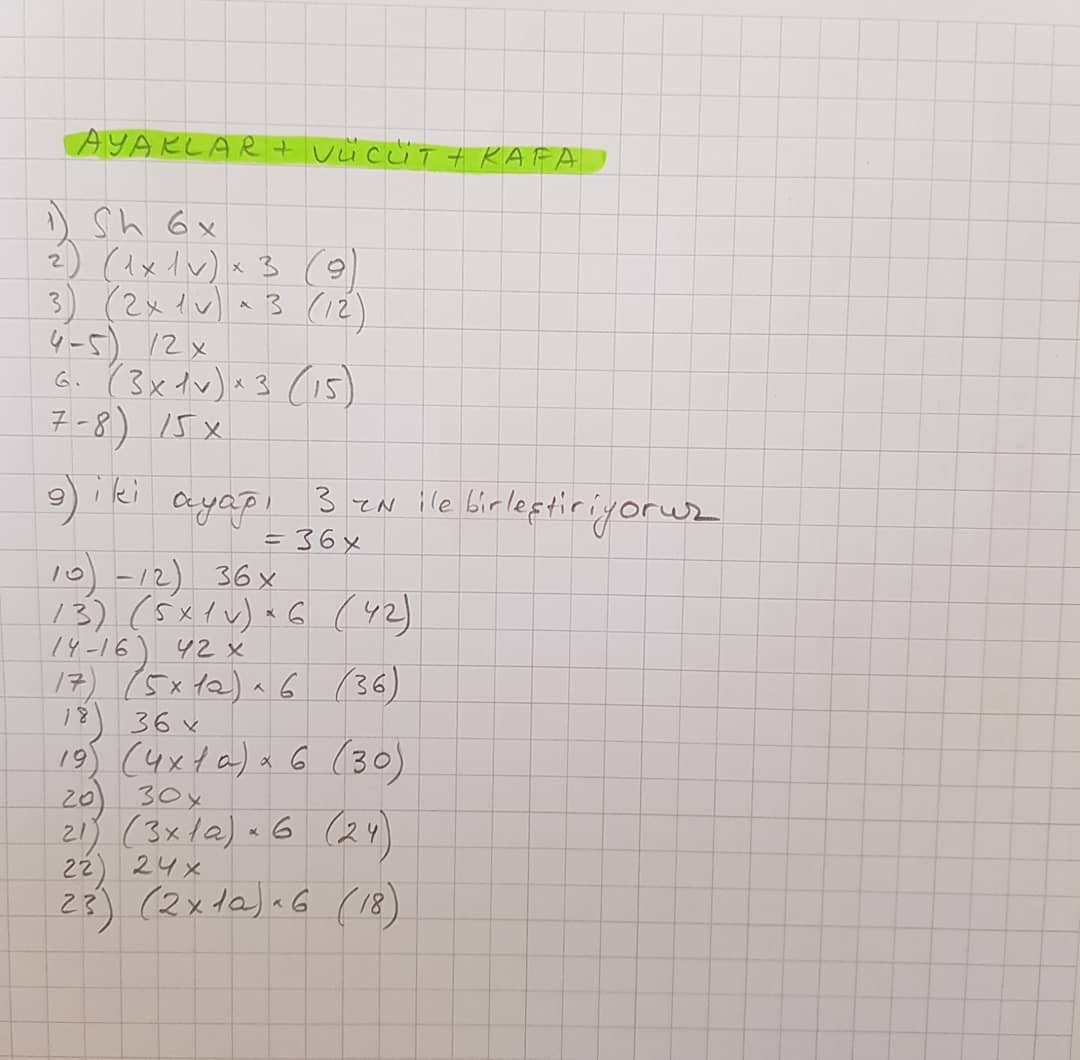 AYAKLAR + VÜCÜT + KAFA
1) Sh 6x
2) (1x1v) x 3 (9)
3) (2x1v) x 3 (12)
4-5) 12x
6. (3x1v) x 3 (15)
7-8) 15x
9) iki ayağı 3 zN ile birleştiriyoruz
= 36x
10) -12) 36x
13) (5x1v) x 6 (42)
14-16) 42x
17) (5x1a) x 6 (36)
18) 36x
19) (4x1a) x 6 (30)
20) 30x
21) (3x1a) x 6 (24)
22) 24x
23) (2x1a) x 6 (18)